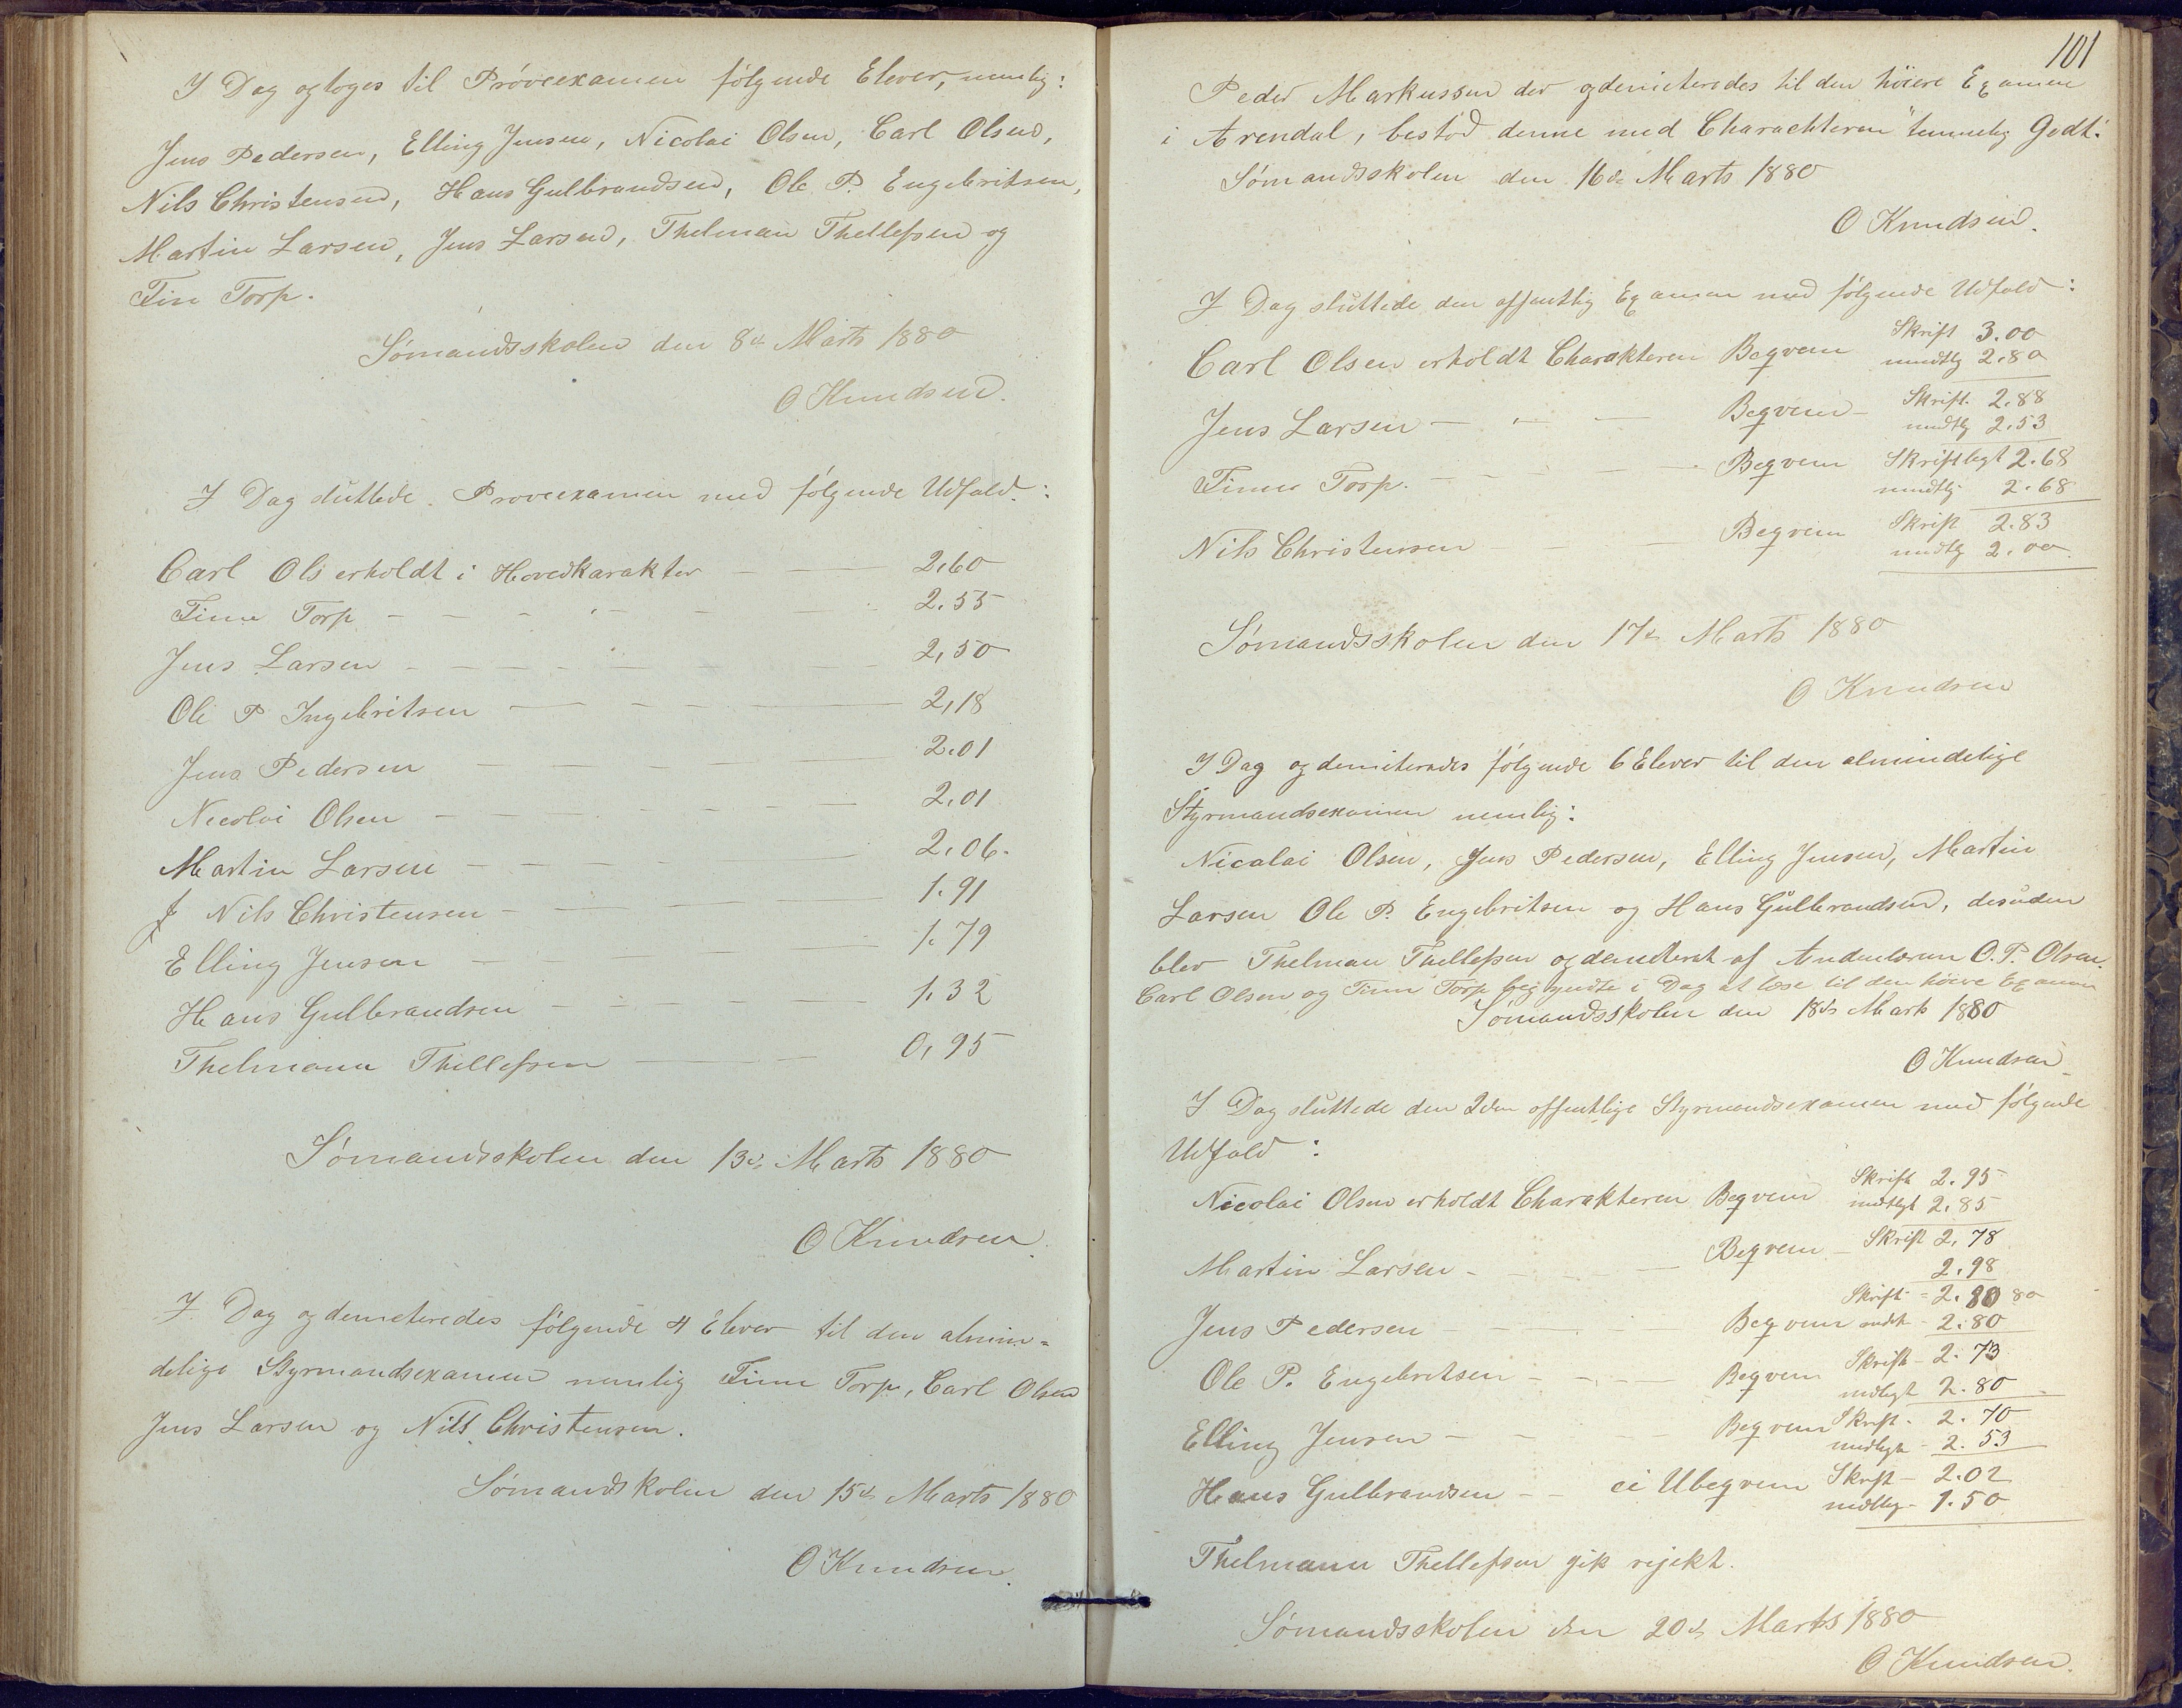 I Dag optoges til Prøveexamen følgende Elever, nemlig:
Jens Pedersen, Elling Jensen, Nicolai Olsen, Carl Olsen,
Nils Christensen, Hans Gulbrandsen, Ole P. Engebritsen,
Martin Larsen, Jens Larsen, Thelman Thellefsen og
Fin Torp.
Sømandsskolen den 8de Marts 1880
O Knudsen.
I Dag sluttede Prøveexamen med følgende Udfald:
Carl Ols erholdt i Hovedkarakter — — 2,60
Finn Torp - - - " - - — 2.55
Jens Larsen - - - - " - - — 2,50
Ole P Ingebritsen — - - - — 2,18
Jens Pedersen — — - - — 2.01
Nicolai Olsen - — - - - — 2,01
Martin Larsen - — - - — 2,06.
J Nils Christensen - — — — 1.91
Elling Jensen - — - — 1.79
Hans Gulbrandsen - - - — — 1.32
Thelmann Thellefsen — — — 0,95
Sømandsskolen den 13de Marts 1880
O Knudsen.
I Dag ogdemeteredes følgende 4 Elever til den almin=
delige Styrmandsexamen nemlig Finn Torp, Carl Olsen
Jens Larsen og Nils Christensen.
Sømandskolen den 15de Marts 1880
O Knudsen.
101
Peder Markussen der ogdemeteredes til den høiere Examen
i Arendal, bestod denne med Charachteren "temmelig Godt".
Sømandsskolen den 16de Marts 1880
O Knudsen.
I Dag sluttede den offentlig Examen med følgende Udfald:
Carl Olsen erholdt Charakteren Beqvem Skrift 3.00
mundtlg 2.80
Jens Larsen — " — Beqvem — Skrift. 2.88
mundtlg 2.53
Finn Torp. - - - — Beqvem Skriftligt 2.68
mundtlg 2.68
Nils Christensen - - — Beqvem Skrift 2.83
mundtlg 2.00.
Sømandsskolen den 17de Marts 1880
O Knudsen
I Dag ogdemeterades følgende 6 Elever til den almindelige
Styrmandsexamen nemlig:
Nicolai Olsen, Jens Pedersen, Elling Jensen, Martin
Larsen Ole P. Engebritsen og Hans Gulbrandsen, desuden
blev Thelman Thellefsen ogdemeteret af Andenlæreren O.P. Olsen.
Carl Olsen og Finn Torp begyndte i Dag at læse til den høiere Examen
Sømandsskolen den 18de Marts 1880
O Knudsen
I Dag sluttede den 2den offentlige Styrmandsexamen med følgende
Udfald:
Nicolai Olsen erholdt Charakteren Beqvem Skrift 2.95
mdtligt 2.85
Martin Larsen - - - — Beqvem — Skrift 2,78
2.98
Jens Pedersen — - - Beqvem Skrift = 2.80 80
mdt - 2.80
Ole P. Engebritsen - - — Beqvem Skrift - 2.73
mdligt 2.80
Elling Jensen — - - Beqvem Skrift - 2.70
mdligt - 2.53
Hans Gulbrandsen - - ei Ubeqvem Skrift - 2.02
mdtlig - 1.50
Thelmann Thellefsen gik rejekt.
Sømandsskolen den 20de Marts 1880
O Knudsen.